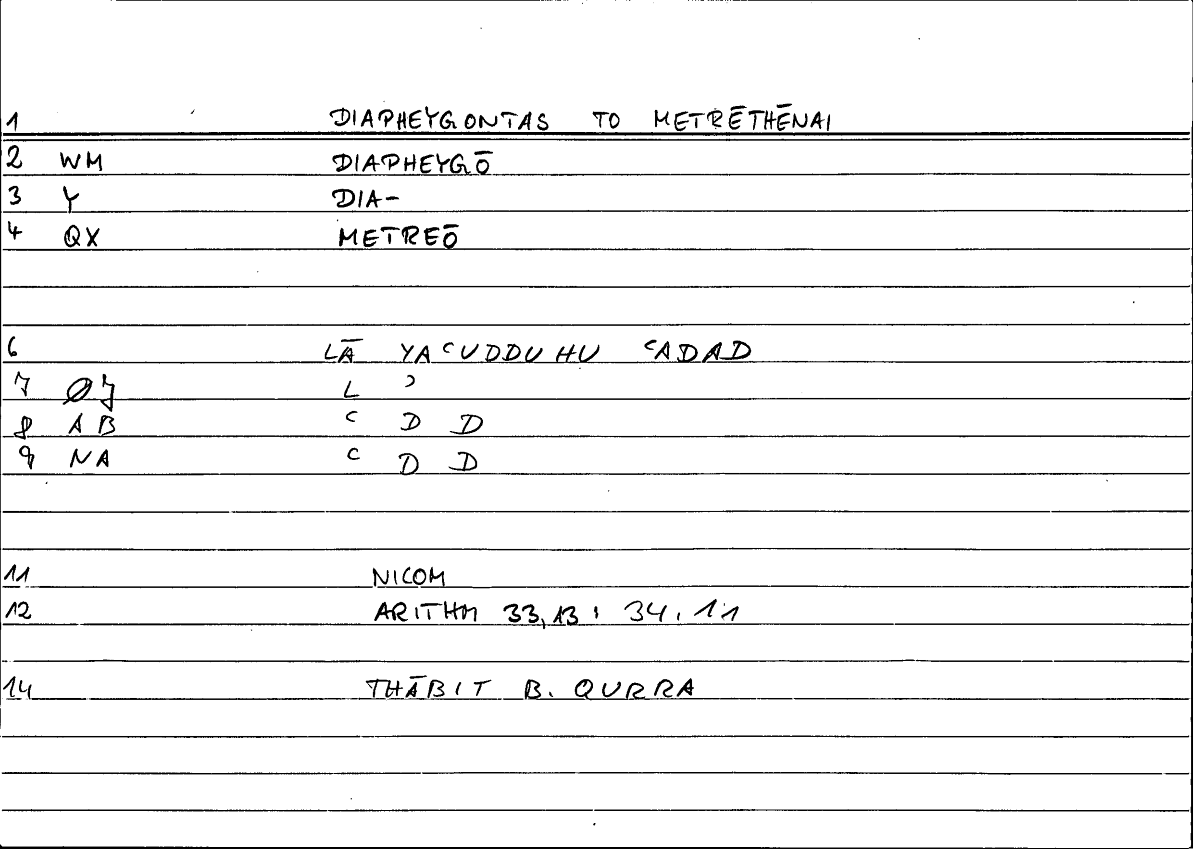 1 DIAPHEYGONTAS TO METRĒTHĒNAI
2 WM DIAPHEYGŌ
3 Y DIA-
4 QX METREŌ
6 LĀ YAʿUDDUHU ʿADAD
7 ØJ L ʾ
8 AB ʿ D D
9 NA ʿ D D
11 NICOM
12 ARITHM 33,13 : 34,11
14 THĀBIT B. QURRA